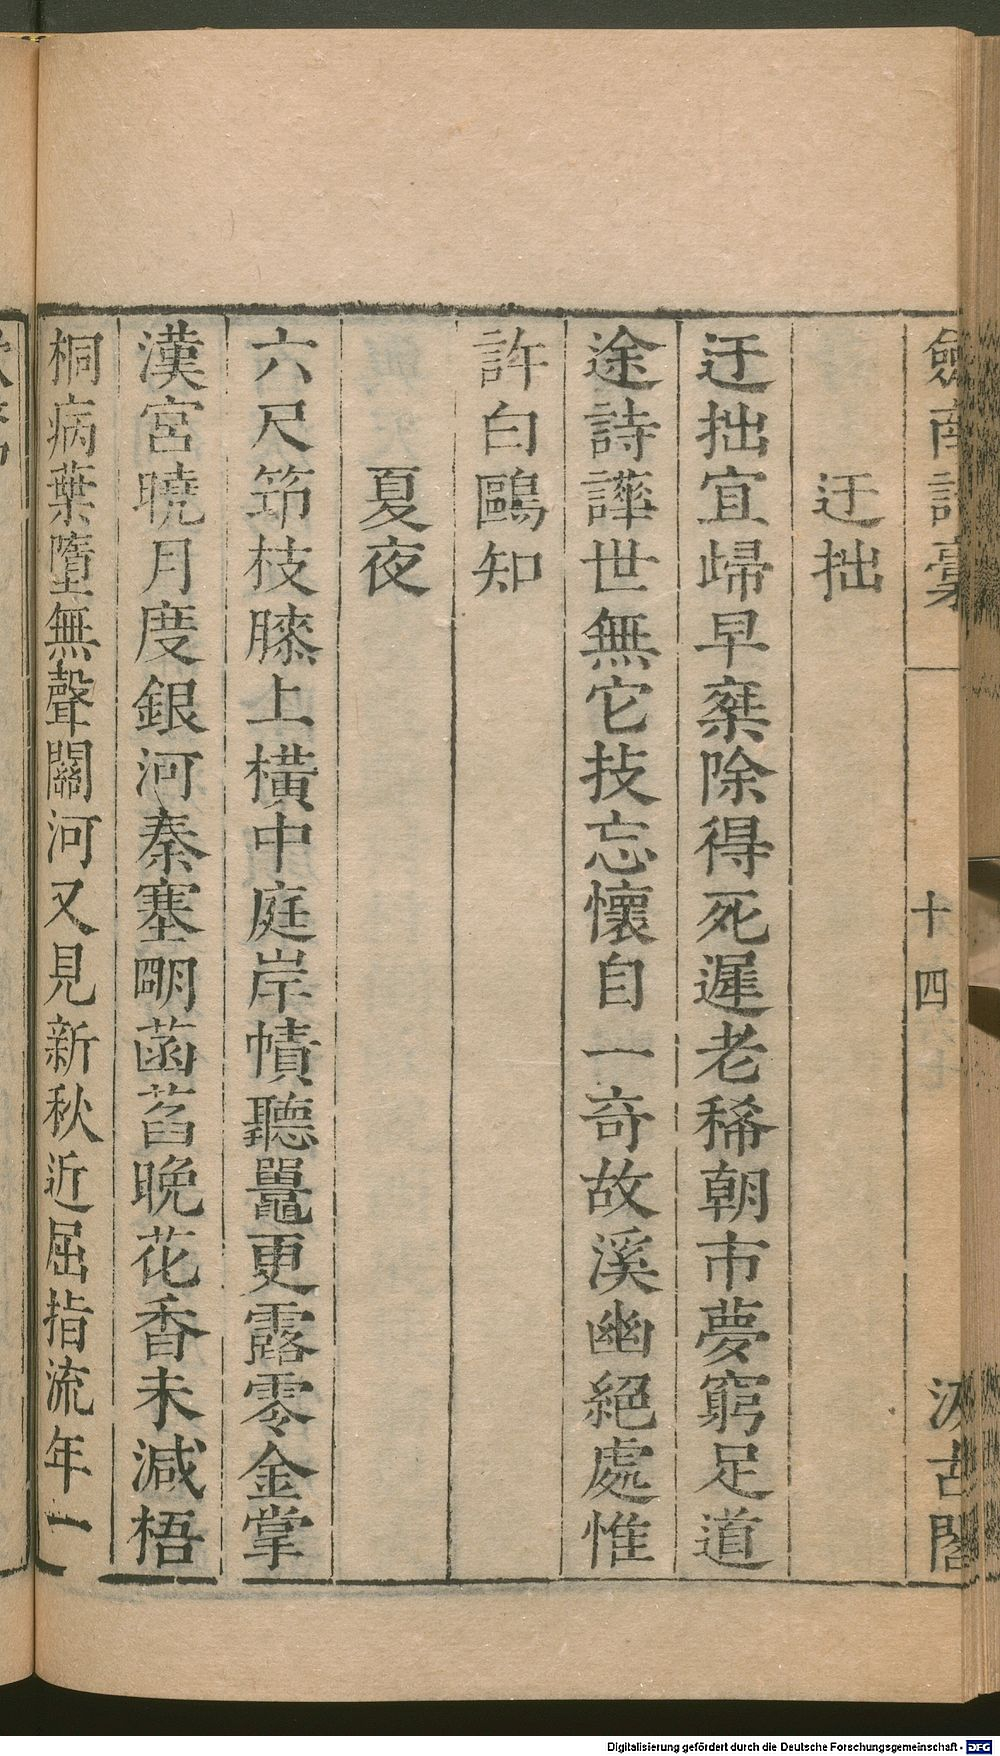 劒南詩稾 十四 汲古閣
迂拙
迂拙宜歸早棄除得死遲老稀朝市夢窮足道
途詩譁世無它技忘懷自一奇故溪幽絕處惟
許白鷗知
夏夜
六尺筇枝膝上橫中庭岸幘聽鼉更露零金掌
漢宮曉月度銀河秦塞朙菡萏晚花香未減梧
桐病葉墮無聲關河又見新秋近屈指流年一
Digitalisierung gefördert durch die Deutsche Forschungsgemeinschaft - DFG